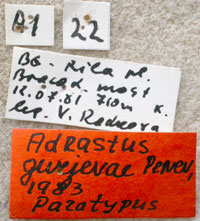 A1 22
BG - Rila M.
most
12.07.81 710m K.
leg. V. Radeova
Adrastus
gurjevae
1983
Paratypus